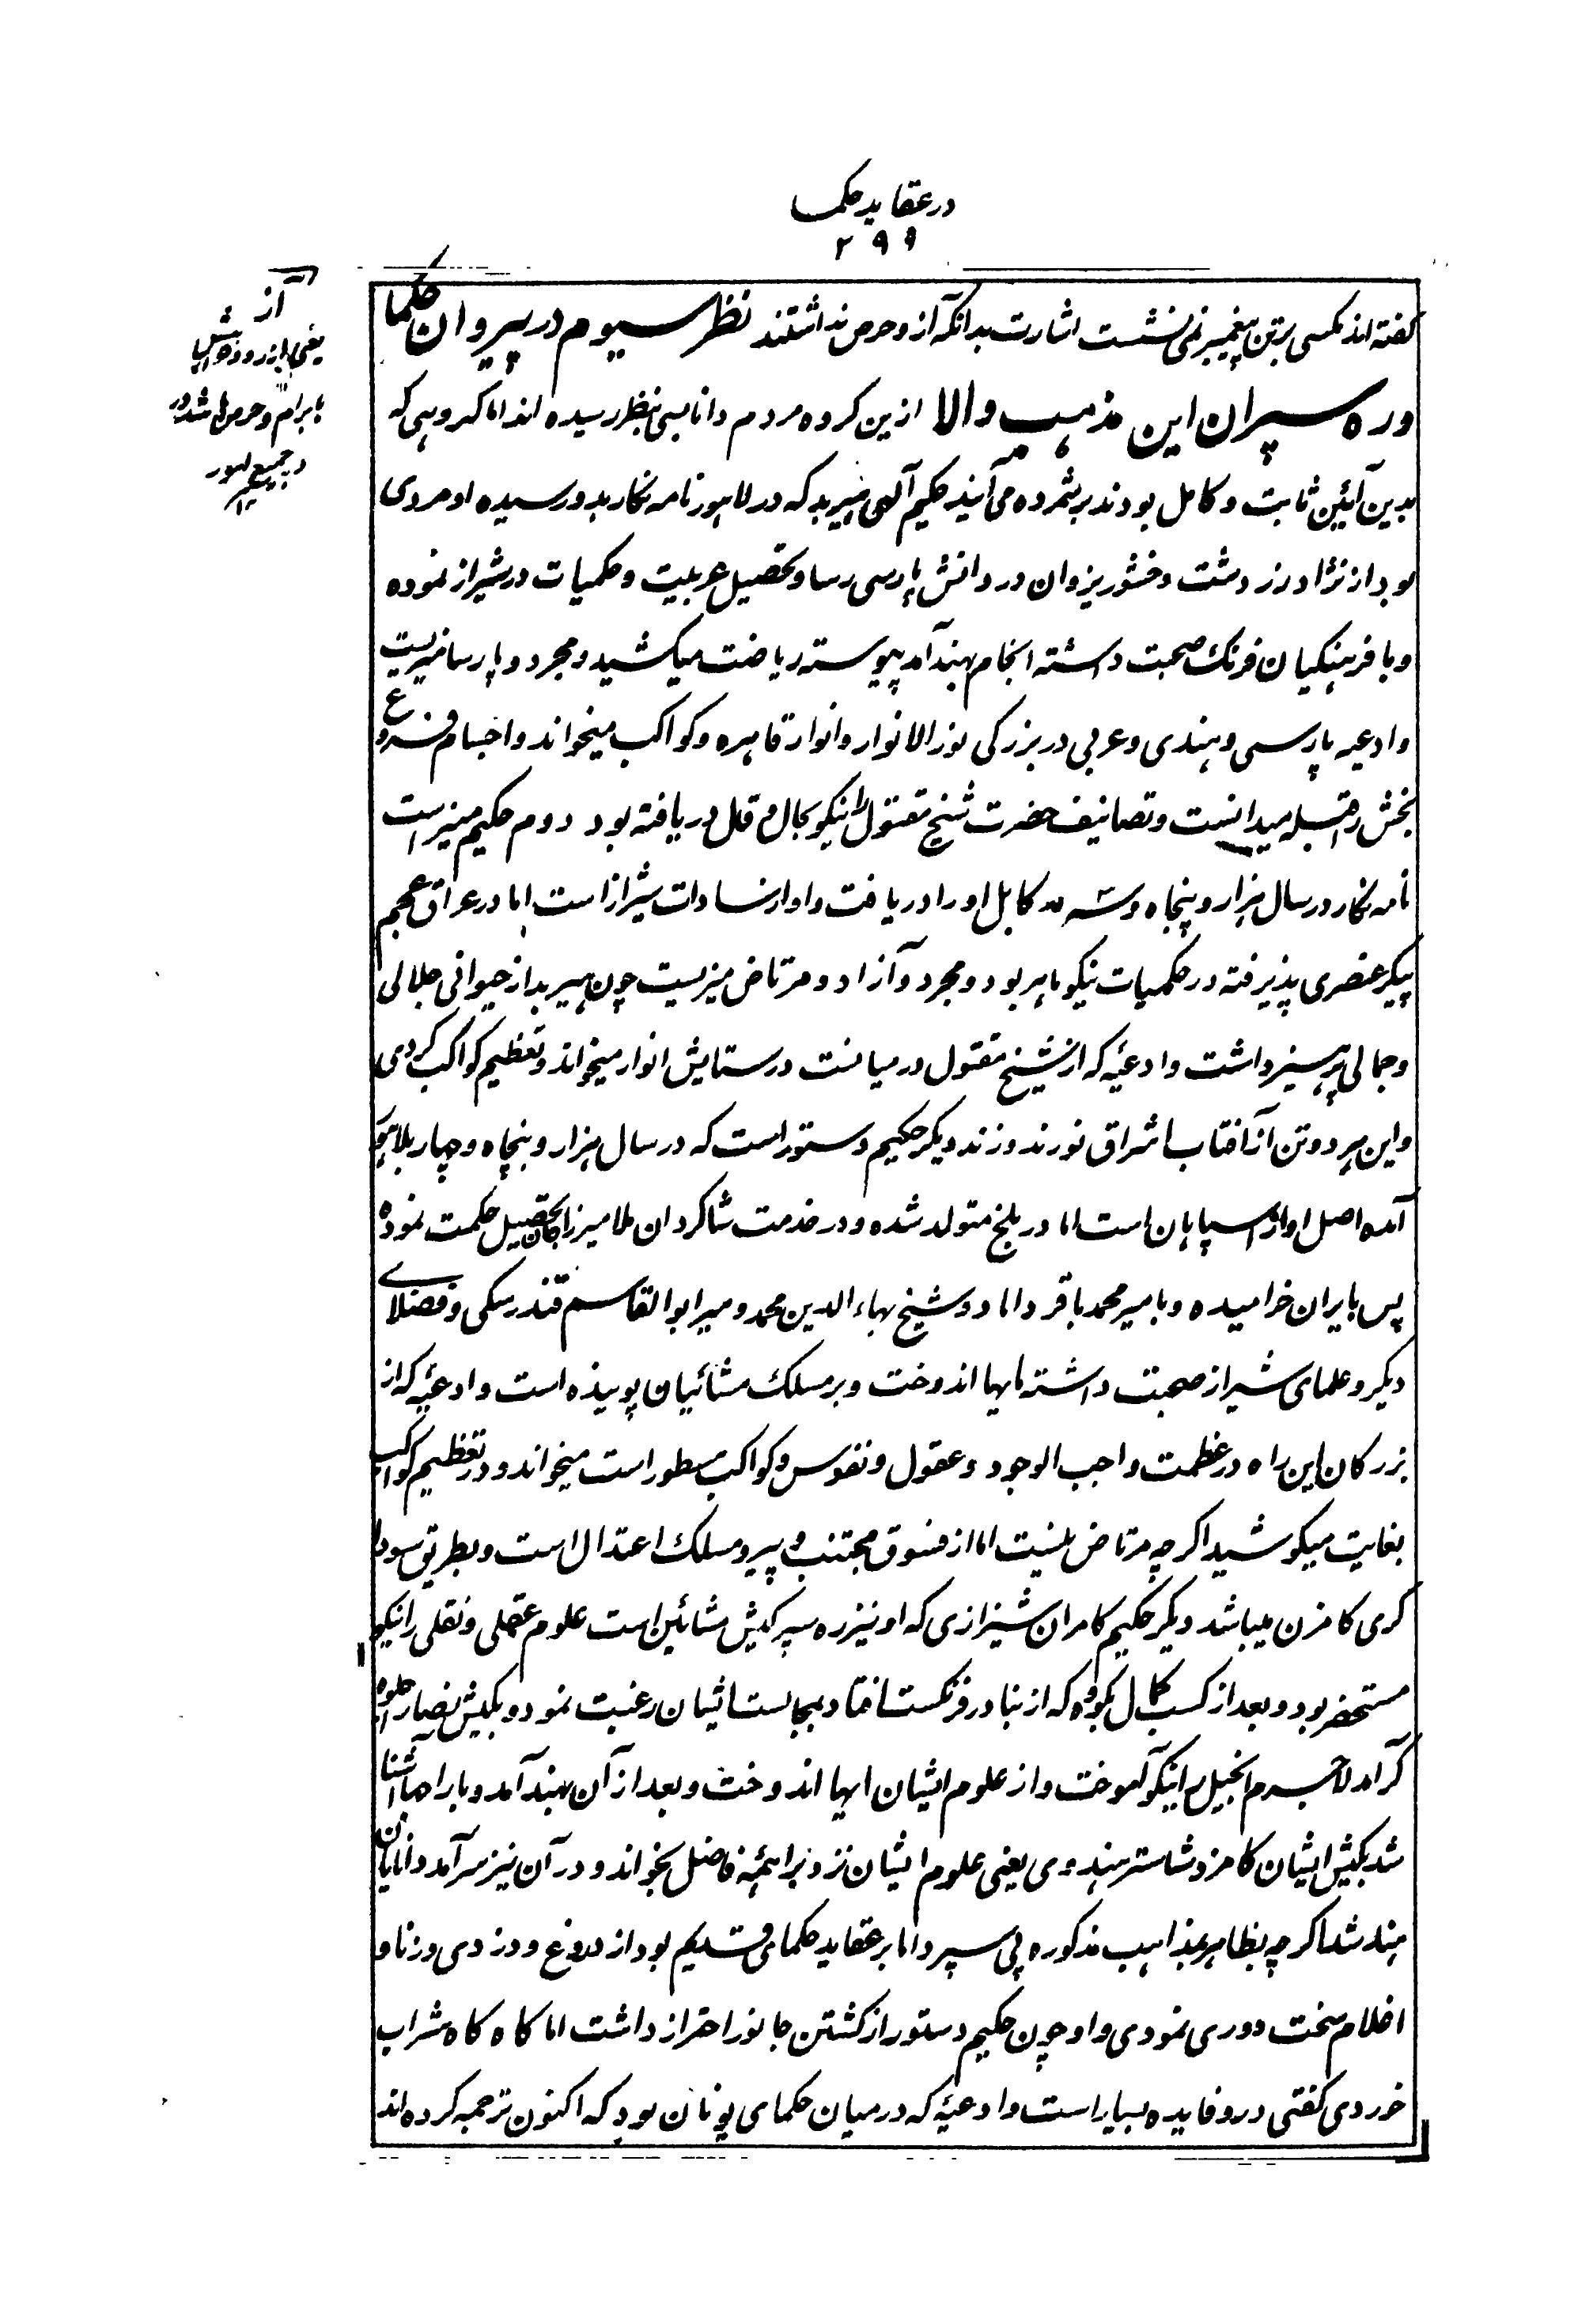 در عقاید حکما
۲۹۹
کفته اند مکسی بر تن پیغمبر نمی نشست اشارت بدانکه آز و حرص نداشتند نظر سیوم در پیروان حکما
و ره سپران این مذهب والا ازین کروه مردم دانا بسی بنظر رسیده اند اما کروهی که
بدین آئین ثابت و کامل بودند بر شمرده می آیند حکیم آلهی هیربد که در لاهور نامه نکار بدو رسیده او مردی
بود از نژاد زردشت وخشور یزدان در دانش پارسی رسا و تحصیل عربیت و حکمیات در شیراز نموده
و با فرهنکیان فرنک صحبت داشته انجام بهند آمد پیوسته ریاضت میکشید و مجرد و پارسا میزیست
و ادعیه پارسی و هندی و عربی در بزرکی نور الانوار و انوار قاهره و کواکب میخواند و اجسام فروغ
بخش را قبله میدانست و تصانیف حضرت شیخ مقتول را نیکو بحال و قال دریافته بود دوم حکیم منیر است
نامه نکار در سال هزار و پنجاه و سه در کابل او را دریافت و او از سادات شیراز است اما در عراق عجم
پیکر عنصری پذیرفته در حکمیات نیکو ماهر بود و مجرد و آزاد و مرتاض میزیست چون هیربد از حیوانی جلالی
و جمالی پرهیز داشت و ادعیه که از شیخ مقتول در میانست در ستایش انوار میخواند و تعظیم کواکب کردی
و این هر دو تن از آفتاب اشراق نورند و زند دیکر حکیم دستور است که در سال هزار و پنجاه و چهار بلاهور
آمده اصل او از سپاهان است اما در بلخ متولد شده و در خدمت شاکردان ملا میرزا جان تحصیل حکمت نموده
پس بایران خرامیده و با میر محمد باقر داماد و شیخ بهاء الدین محمد و میر ابو القاسم قندرسکی و فضلای
دیکر و علمای شیراز صحبت داشته مایها اندوخت و بر مسلک مشائیان پوینده است و ادعیه که از
بزرکان این راه در عظمت واجب الوجود و عقول و نفوس و کواکب مسطور است میخواند و در تعظیم کواکب
بغایت میکوشید اکر چه مرتاض نیست اما از فسوق مجتنب و پیرو مسلک اعتدال است و بطریق سودا
کری کامزن میباشد دیکر حکیم کامران شیرازی که او نیز ره سپر کیش مشائین است علوم عقلی و نقلی را نیکو
مستحضر بود و بعد از کسب کمال بکووه که از بنادر فرنکست افتاد بمجالست ایشان رغبت نمود و بکیش نصارا جلوه
کر آمد لاجرم انجیل را نیکو آموخت و از علوم ایشان مایها اندوخت و بعد از آن بهند آمد و با راجها آشنا
شد بکیش ایشان کامزد شاستر هندوی یعنی علوم ایشان نزد براهمه فاضل بخواند و در آن نیز سر آمد دانایان
هند شد اکر چه بظاهر بمذاهب مذکوره پی سپرد اما بر عقاید حکمای قدیم بود از دروغ و دزدی و زنا و
اغلام سخت دوری نمودی و او چون حکیم دستور از کشتن جانور احتراز داشت اما کاه کاه شراب
خوردی کفتی درو فایده بسیار است و ادعیه که در میان حکمای یونان بود که اکنون ترجمه کرده اند
آز
یعنی
با برام و حرص